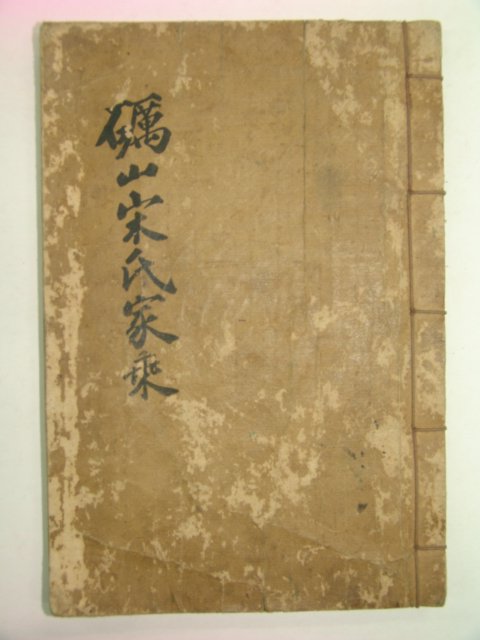 礪山宋氏家乘